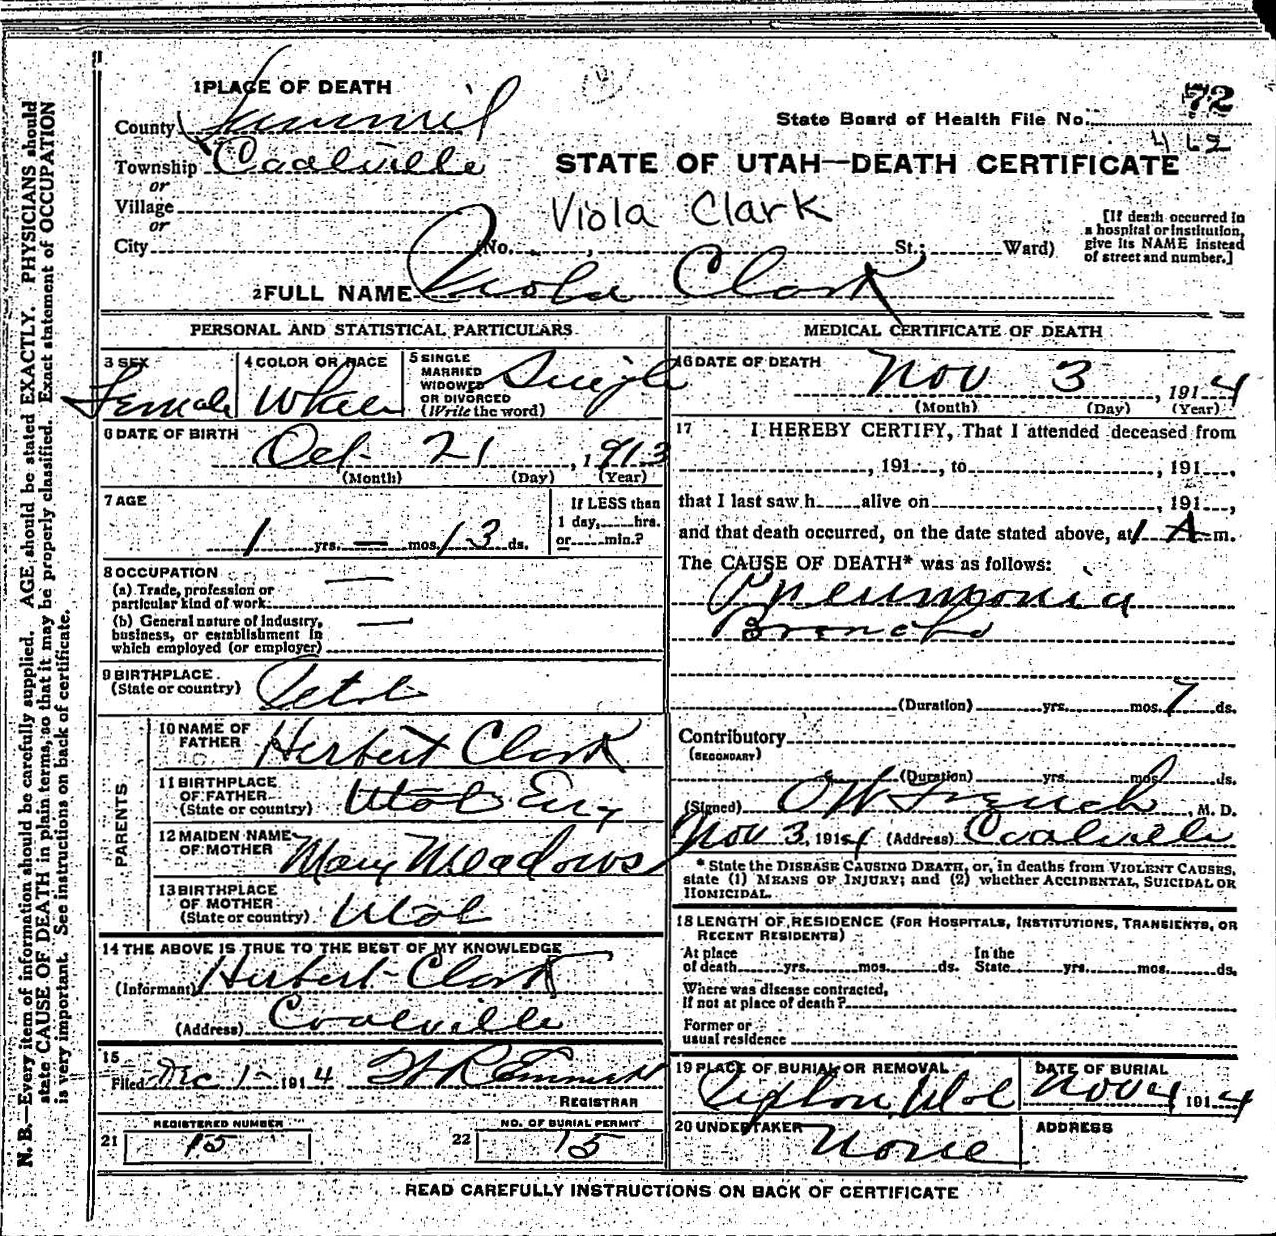 1 PLACE OF DEATH
72
County Summit
State Board of Health File No.
462
Township Coalville
STATE OF UTAH—DEATH CERTIFICATE
or
Village
Viola Clark
or
City No. , St.; Ward)
[If death occurred in
a hospital or institution,
give its NAME instead
of street and number.]
2 FULL NAME Viola Clark
PERSONAL AND STATISTICAL PARTICULARS
3 SEX
Female
4 COLOR OR RACE
White
5 SINGLE
MARRIED
WIDOWED
OR DIVORCED
(Write the word)
Single
6 DATE OF BIRTH
Oct 21, 1913
(Month) (Day) (Year)
7 AGE
1 yrs. — mos. 13 ds.
If LESS than
1 day, hrs.
or min.?
8 OCCUPATION
(a) Trade, profession or
particular kind of work. —
(b) General nature of industry,
business, or establishment in
which employed (or employer) —
9 BIRTHPLACE
(State or country) Utah
PARENTS
10 NAME OF
FATHER Herbert Clark
11 BIRTHPLACE
OF FATHER
(State or country) Utah Eng
12 MAIDEN NAME
OF MOTHER Mary Meadows
13 BIRTHPLACE
OF MOTHER
(State or country) Utah
14 THE ABOVE IS TRUE TO THE BEST OF MY KNOWLEDGE
(Informant) Herbert Clark
(Address) Coalville
15
Filed Dec 1- 1914
REGISTRAR
REGISTERED NUMBER
21 15
NO. OF BURIAL PERMIT
22 15
MEDICAL CERTIFICATE OF DEATH
16 DATE OF DEATH
Nov 3, 1914
(Month) (Day) (Year)
17 I HEREBY CERTIFY, That I attended deceased from
, 191 , to , 191 ,
that I last saw h alive on , 191 ,
and that death occurred, on the date stated above, at 1 A m.
The CAUSE OF DEATH* was as follows:
Pneumonia
Broncho
(Duration) yrs. mos. 7 ds.
Contributory
(SECONDARY)
(Duration) yrs. mos. ds.
(Signed) O W French, M. D.
Nov 3, 1914 (Address) Coalville
* State the DISEASE CAUSING DEATH, or, in deaths from VIOLENT CAUSES,
state (1) MEANS OF INJURY; and (2) whether ACCIDENTAL, SUICIDAL OR
HOMICIDAL.
18 LENGTH OF RESIDENCE (FOR HOSPITALS, INSTITUTIONS, TRANSIENTS, OR
RECENT RESIDENTS)
At place
of death yrs. mos. ds.
In the
State yrs. mos. ds.
Where was disease contracted,
if not at place of death?
Former or
usual residence
19 PLACE OF BURIAL OR REMOVAL
Upton, Utah
DATE OF BURIAL
Nov 4 1914
20 UNDERTAKER
None
ADDRESS
READ CAREFULLY INSTRUCTIONS ON BACK OF CERTIFICATE
N. B.—Every item of information should be carefully supplied. AGE should be stated EXACTLY. PHYSICIANS should
state CAUSE OF DEATH in plain terms, so that it may be properly classified. Exact statement of OCCUPATION
is very important. See instructions on back of certificate.